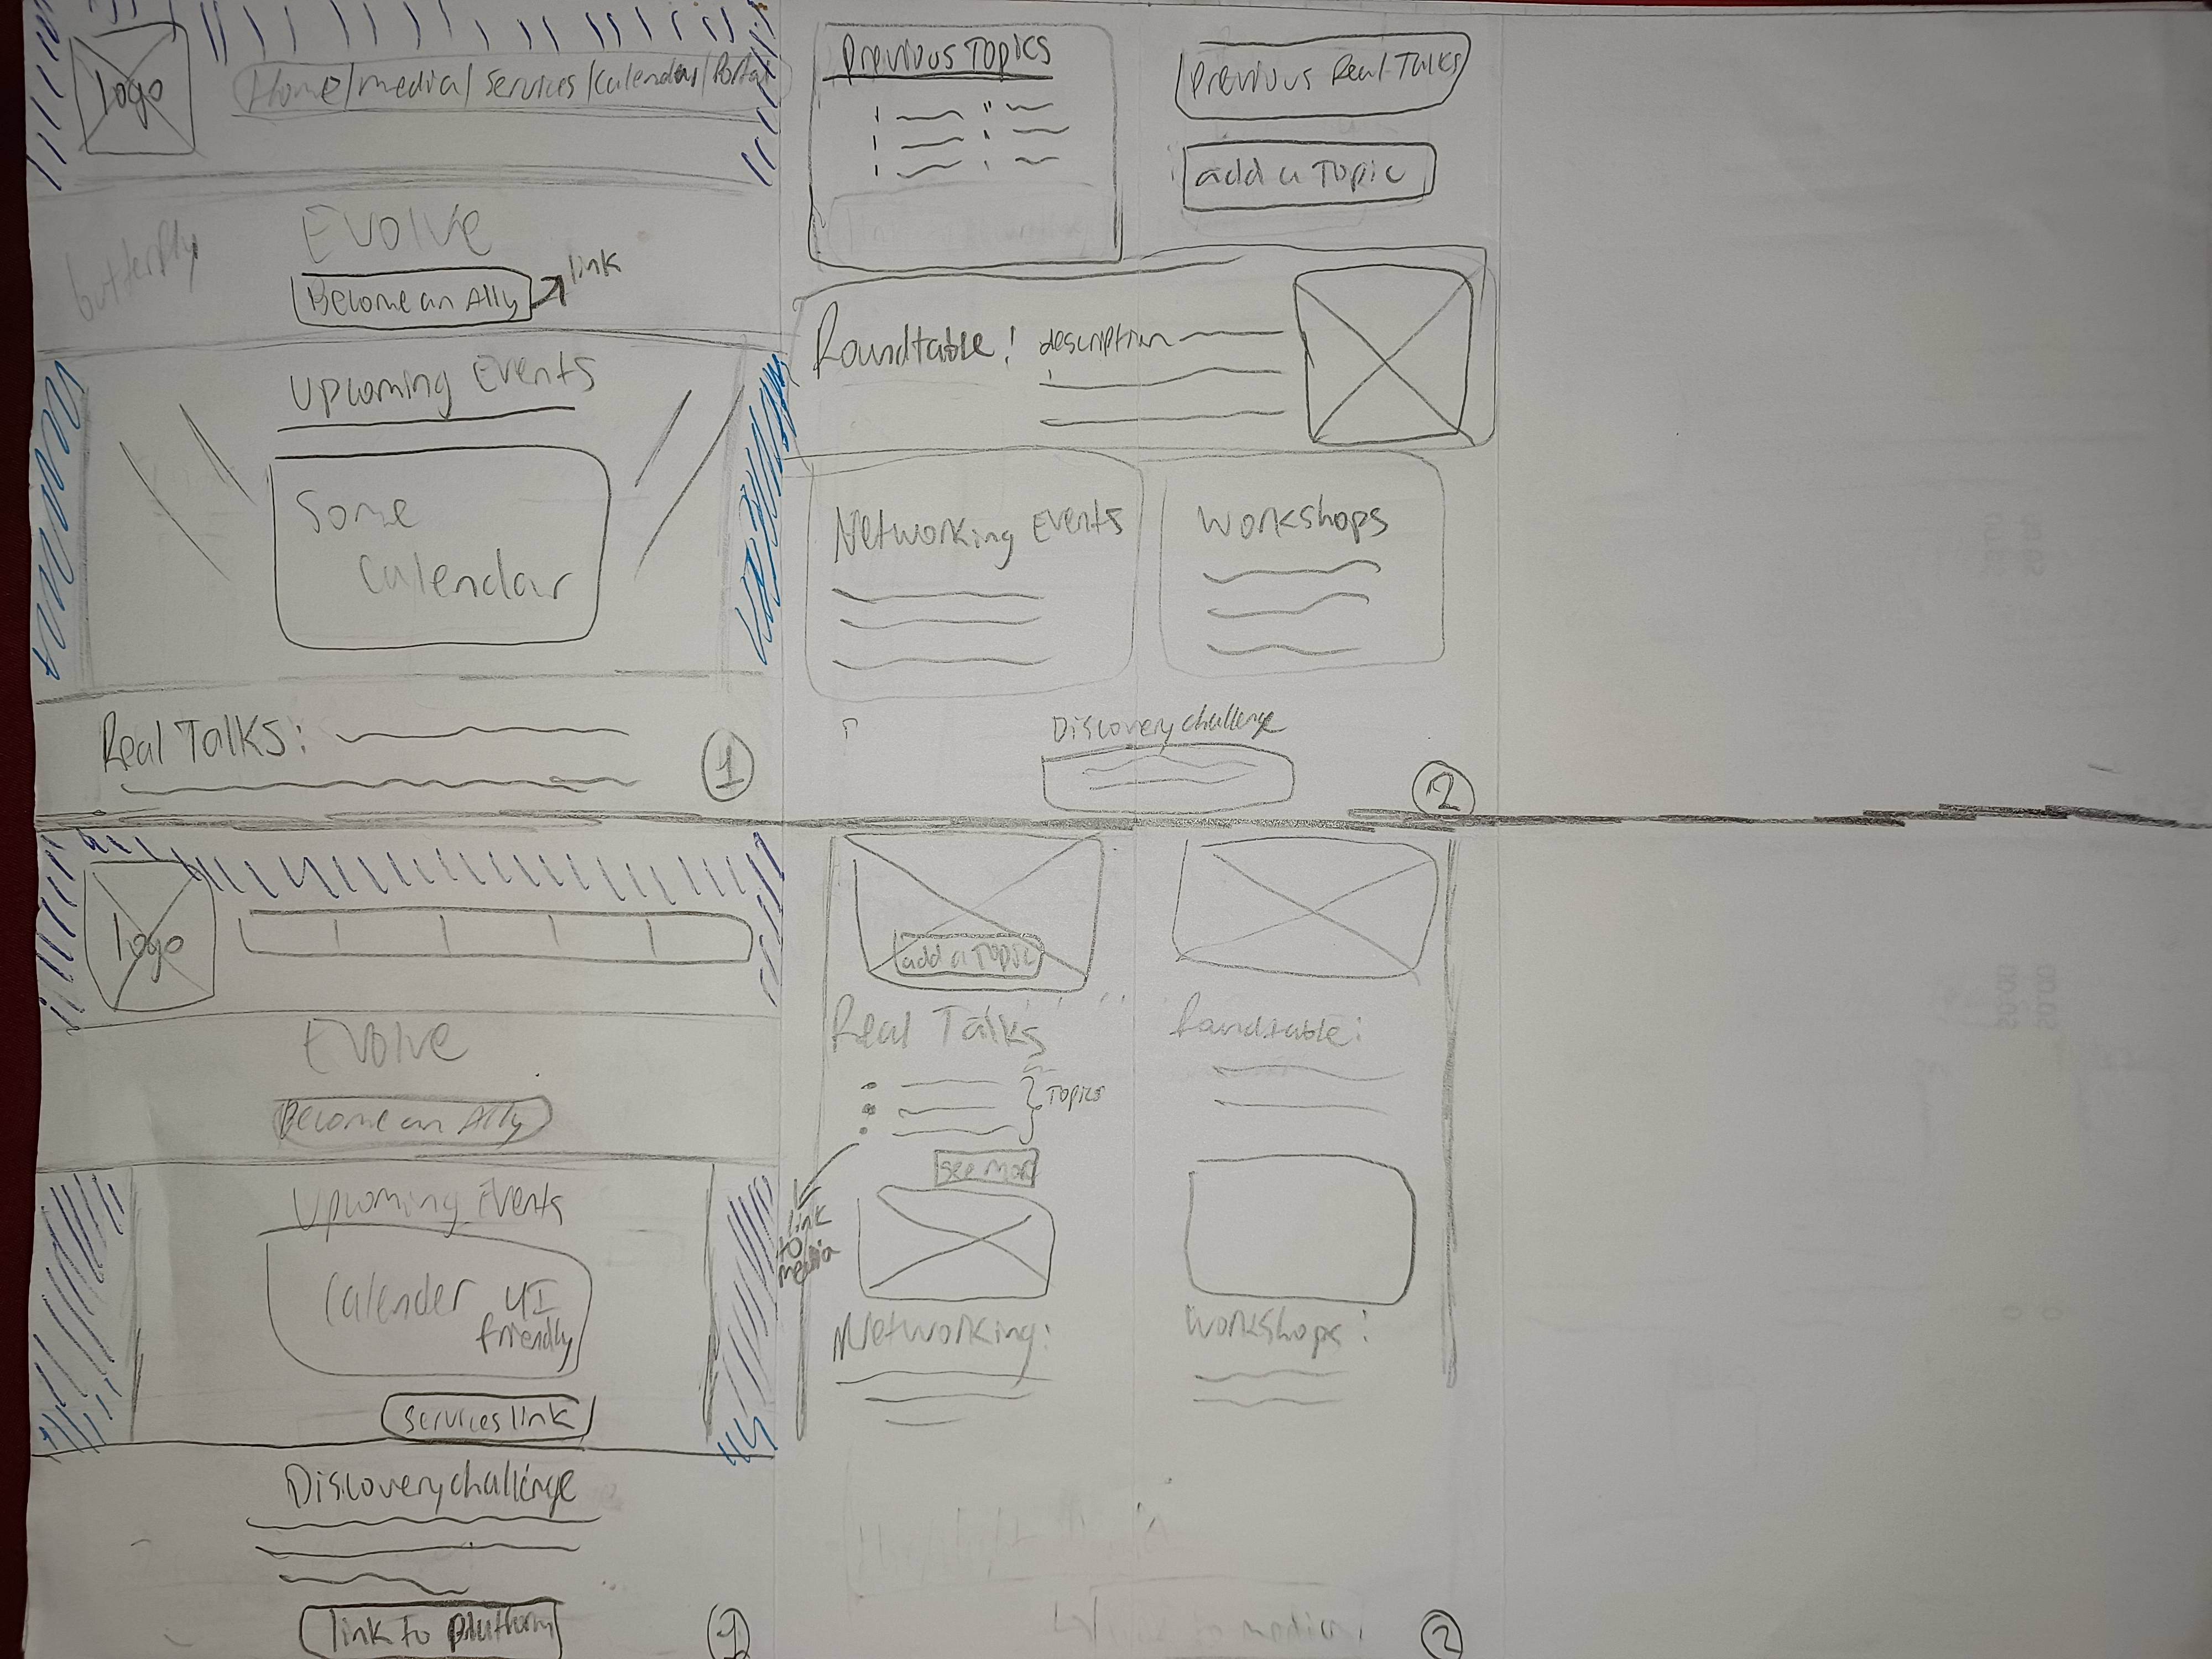 logo
Home/media/services/Calendar/Portal
butterfly
Evolve
Become an Ally
link
Upcoming Events
Some
Calendar
Real Talks:
1
Previous Topics
Previous Real Talks
add a Topic
Roundtable! description
Networking Events
Workshops
Discovery challenge
2
logo
Evolve
Become an Ally
Upcoming Events
Calender UI
friendly
services link
Discovery challenge
link to platform
1
add a Topic
Real Talks
Roundtable:
Topics
see more
link
to
media
Networking:
Workshops:
2